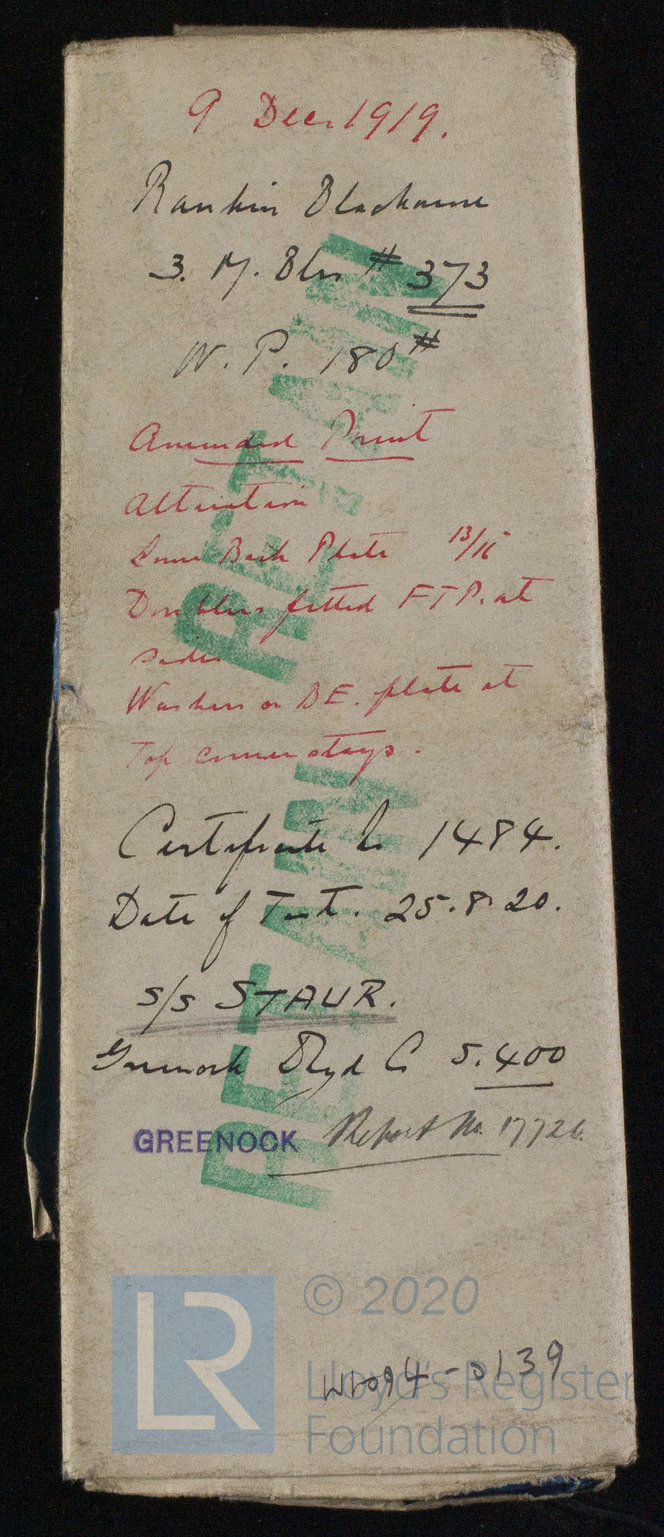 9 Dec. 1919.
Rankin Blackmore
3. M. Blrs # 373
W. P. 180#
Amended Print
Alteration
Lower Back Plate 13/16
Doublers fitted FTP. at
sides
Washers on B.E. plate at
Top corner stays.
Certificate No 1484.
Date of Test. 25.8.20.
s/s STAUR.
Greenock Dkyd Co 5.400
GREENOCK Report No. 17726
RETAIN
RETAIN
LR
© 2020
Lloyd's Register
Foundation
0139